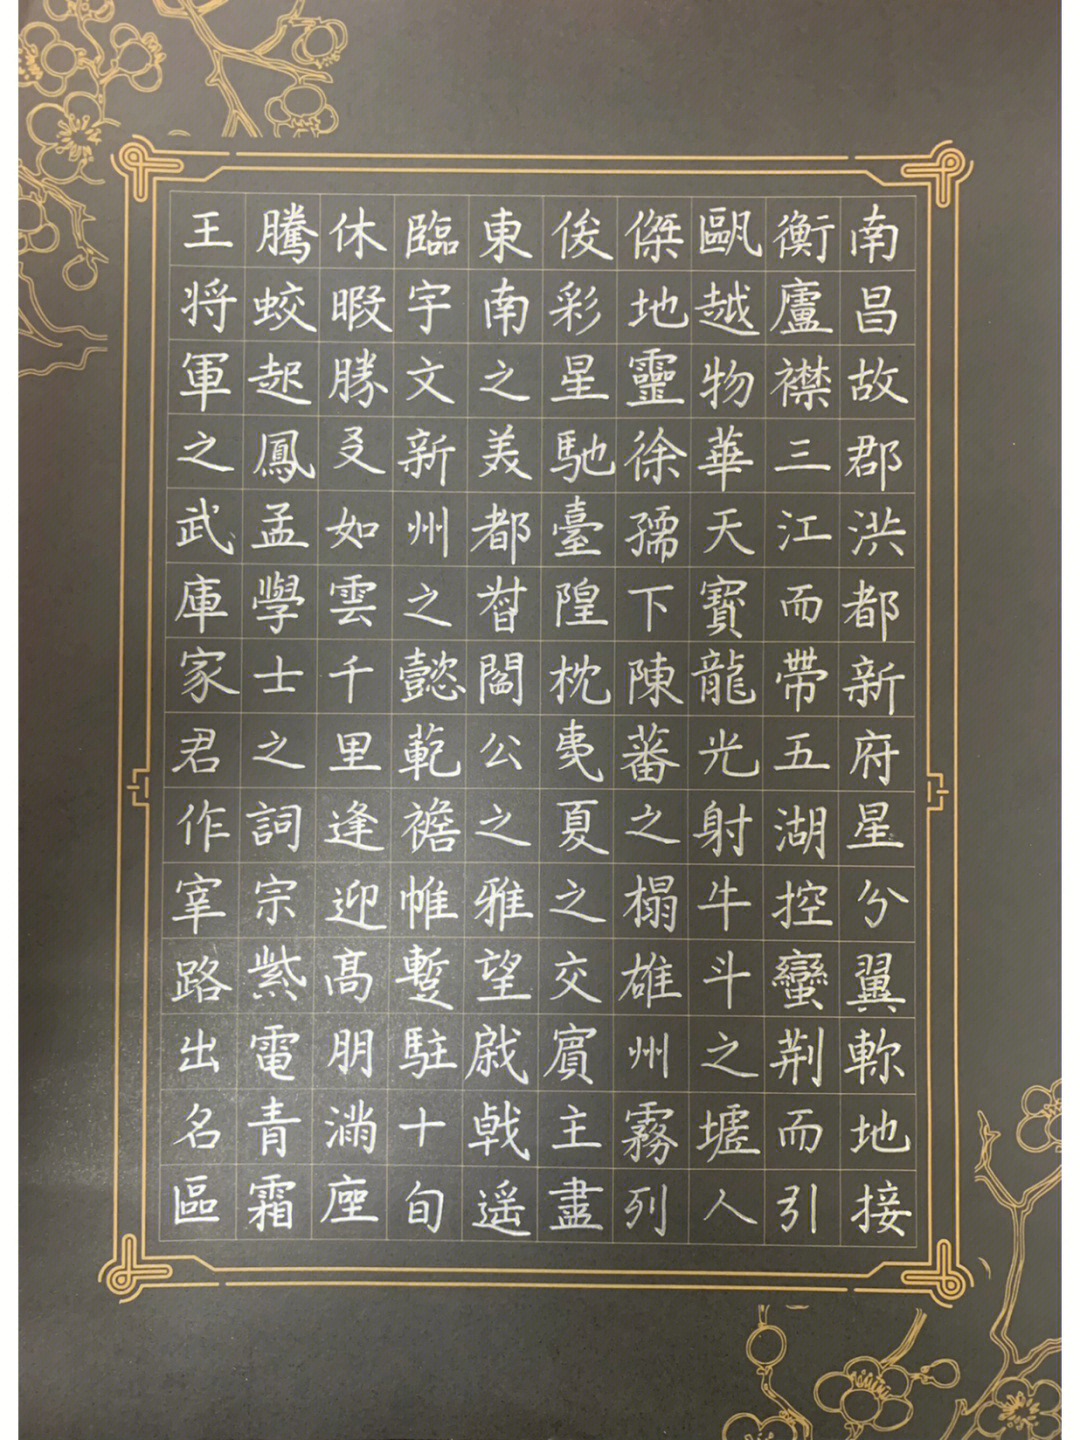 南昌故郡洪都新府星分翼軫地接
衡廬襟三江而帶五湖控蠻荆而引
甌越物華天寶龍光射牛斗之墟人
傑地靈徐孺下陳蕃之榻雄州霧列
俊彩星馳臺隍枕夷夏之交賓主盡
東南之美都督閻公之雅望棨戟遥
臨宇文新州之懿範襜帷暫駐十旬
休暇勝友如雲千里逢迎高朋滿座
騰蛟起鳳孟學士之詞宗紫電青霜
王将軍之武庫家君作宰路出名區